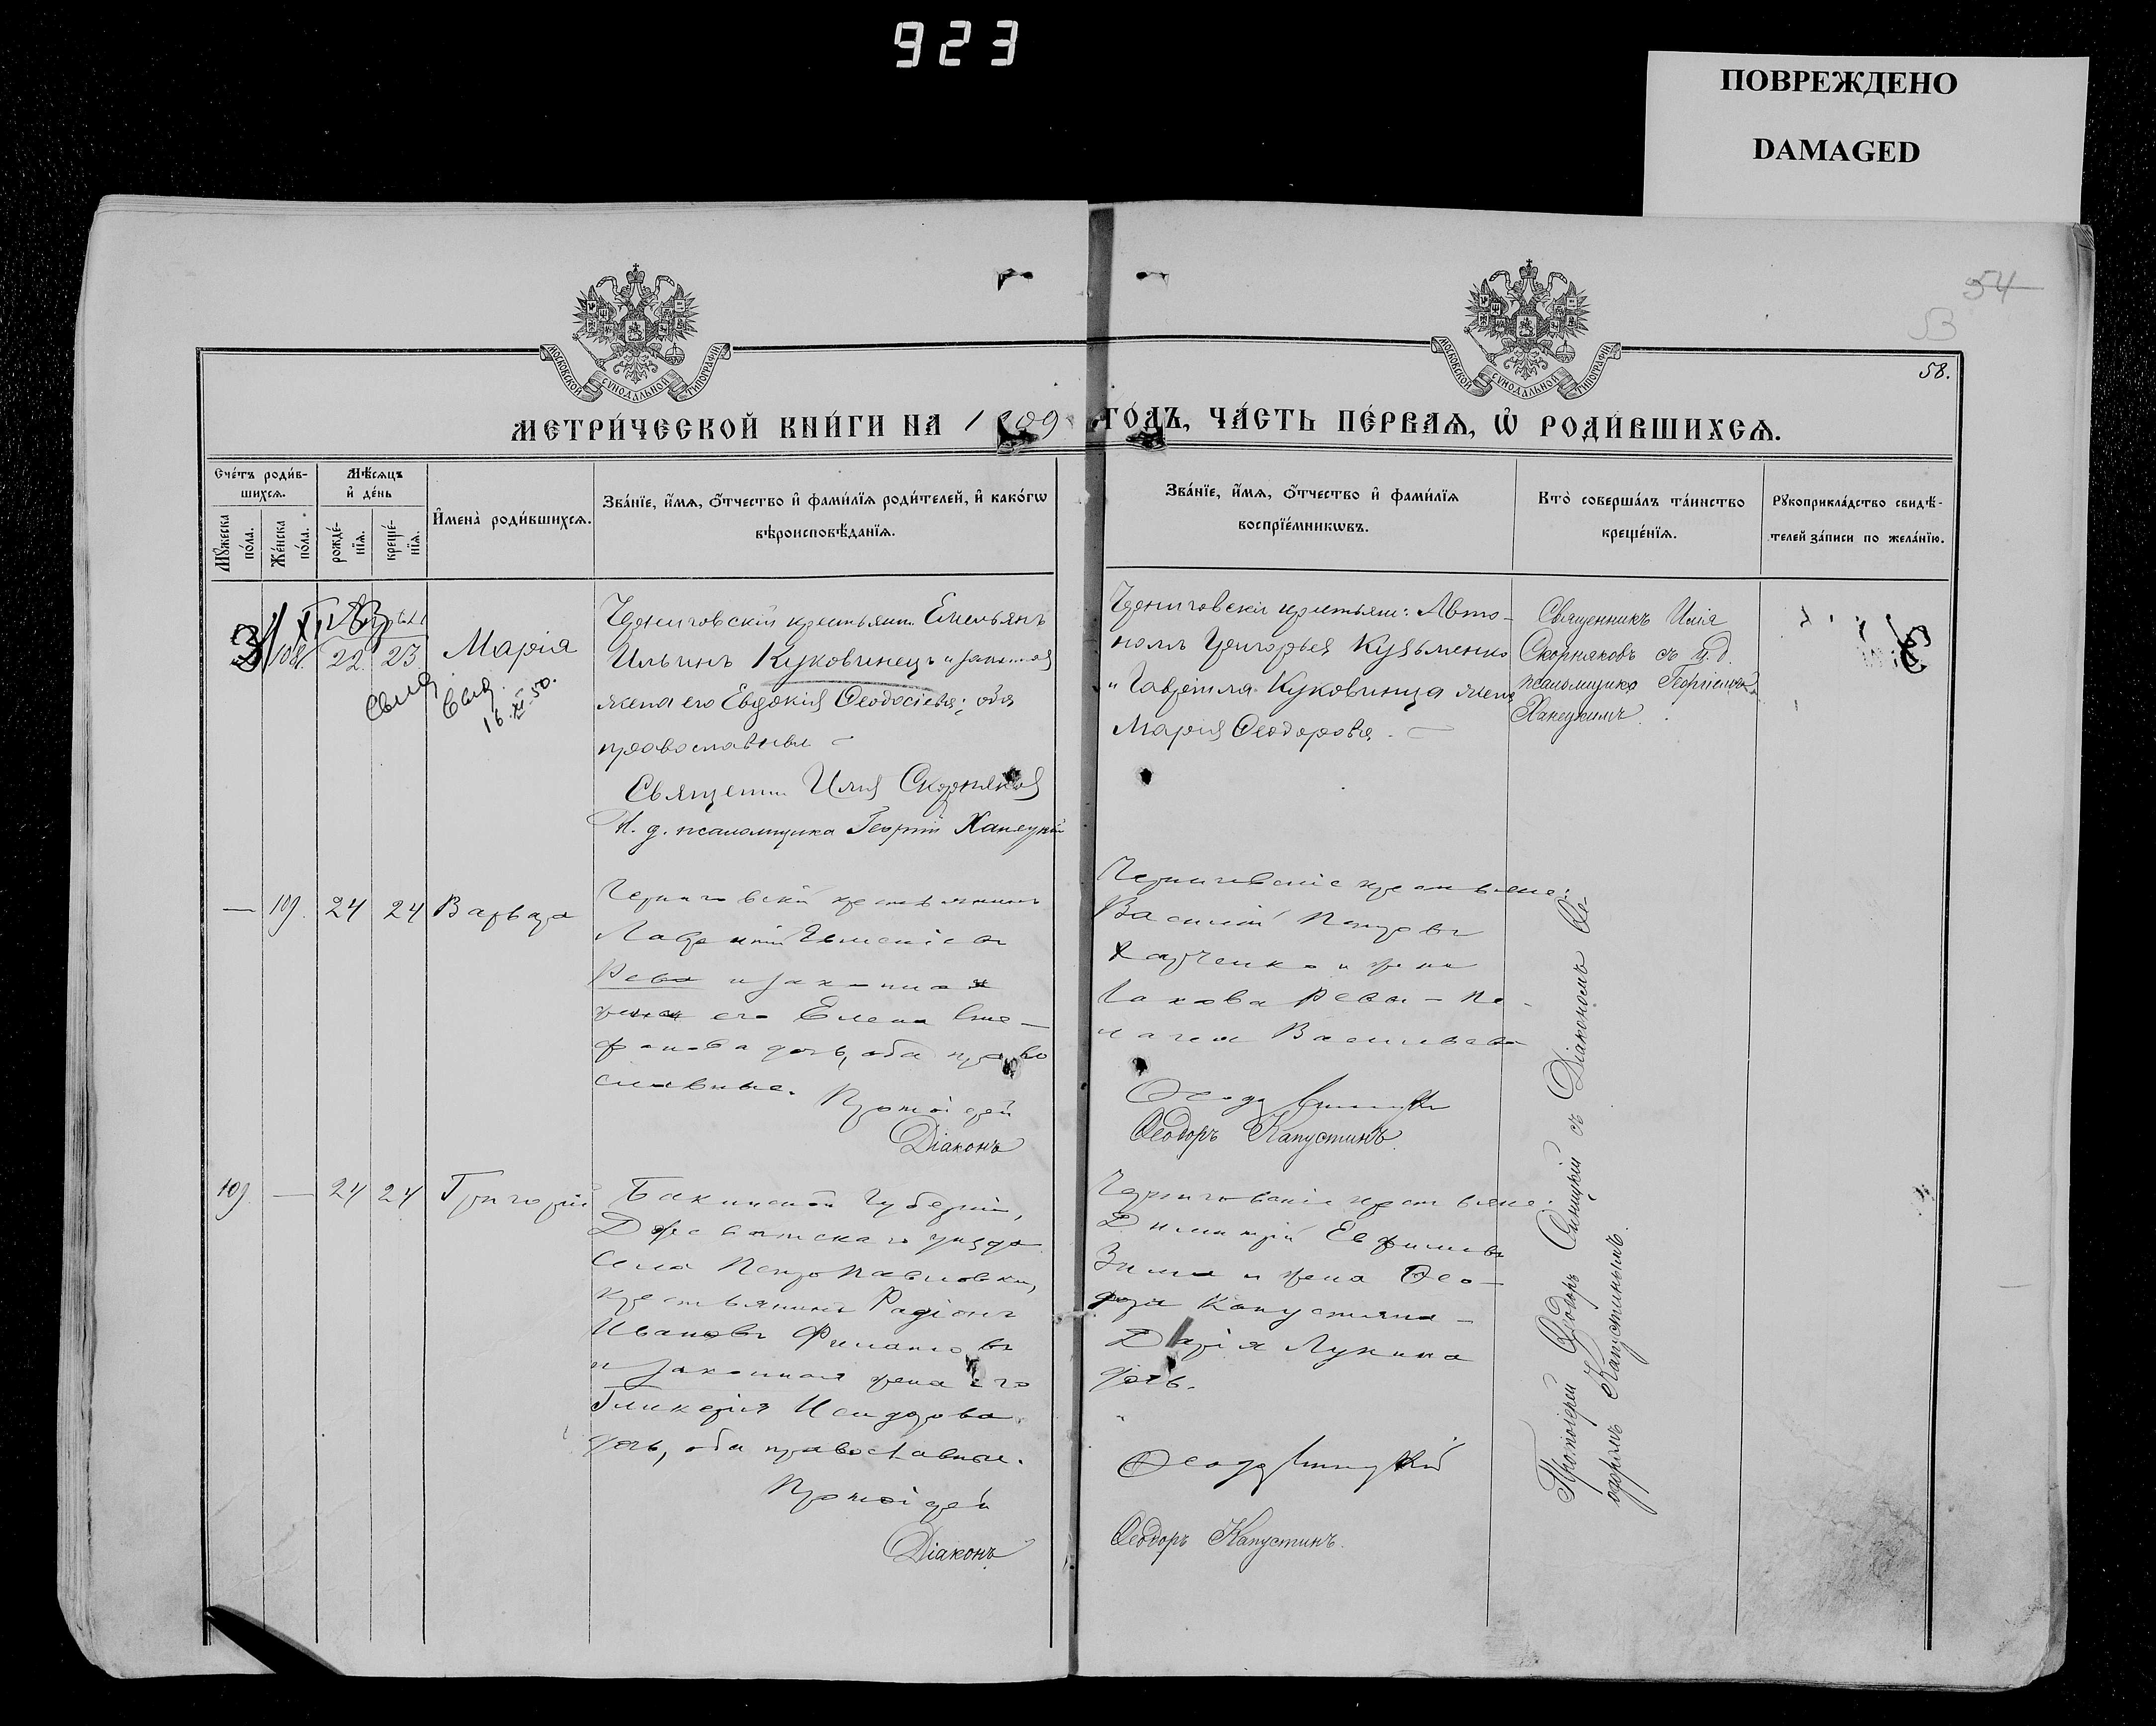 923
ПОВРЕЖДЕНО
DAMAGED
54
53
58.
МОСКОВСКОЙ СѴНОДАЛЬНОЙ ТИПОГРАФІИ
МОСКОВСКОЙ СѴНОДАЛЬНОЙ ТИПОГРАФІИ
МЕТРИ́ЧЕСКОЙ КНИ́ГИ НА 1909 ГО́ДЪ, ЧА́СТЬ ПЕ́РВАѦ, Ѡ҆ РОДИ́ВШИХСѦ.
Сче́тъ роди́в-
шихсѧ.
Мꙋ́жеска по́ла.
Же́нска по́ла.
Мѣ́сѧцъ
и҆ де́нь
рожде́-
нїѧ.
креще́-
нїѧ.
И҆мена̀ роди́вшихсѧ.
Зва́нїе, и҆́мѧ, ѻ҆́тчество и҆ фами́лїѧ роди́телей, и҆ како́гѡ
вѣроисповѣ́данїѧ.
Зва́нїе, и҆́мѧ, ѻ҆́тчество и҆ фами́лїѧ
воспрїе́мникѡвъ.
Кто̀ соверша́лъ та́инство
креще́нїѧ.
Рꙋкоприкла́дство свидѣ́-
телей за́писи по жела́нїю.
108. 22. 23. Марія
16-XI-50.
Черниговскій крестьянин Емельянъ
Ильинъ Куковинецъ и законная
жена его Евдокія Ѳеодосіева; оба
православные
Священн. Илія Скорняковъ
И. д. псаломщика Георгій Ханецкій
Черниговскіе крестьян: Авто-
номъ Григорьев Кузьменко
и Гавріила Куковинца жена
Марія Ѳеодорова.
Священникъ Илія
Скорняковъ съ и.д.
псаломщика Георгіемъ
Ханецкимъ.
— 109. 24 24 Варвара
Черниговскій крестьянинъ
Лаврентій
Рева и законная
жена его Елена Сте-
фанова дочь, оба право
славные.
Протоіерей
Діаконъ
Черниговскіе крестьяне:
Василій Петровъ
Харченко и жена
Іакова Ревы - Пе-
лагея Васильева
Ѳеодоръ Синицкій
Ѳеодоръ Капустинъ.
109. — 24 24 Григорій
Бакинской Губерніи,
Джеватскаго уезда
Села Петропавловки,
крестьянинъ Радіонъ
Ивановъ
и законная жена его
Гликерія Исидорова
дочь, оба православные.
Протоіерей
Діаконъ
Черниговскіе крестьяне:
Димитрій Евфимовъ
Зима и жена Ѳео-
дора Капустина -
Дарія Лукина
дочь.
Ѳеодоръ Синицкій
Ѳеодоръ Капустинъ.
Протоіерей Ѳеодоръ Синицкій съ Діакономъ Ѳе-
одоромъ Капустинымъ.